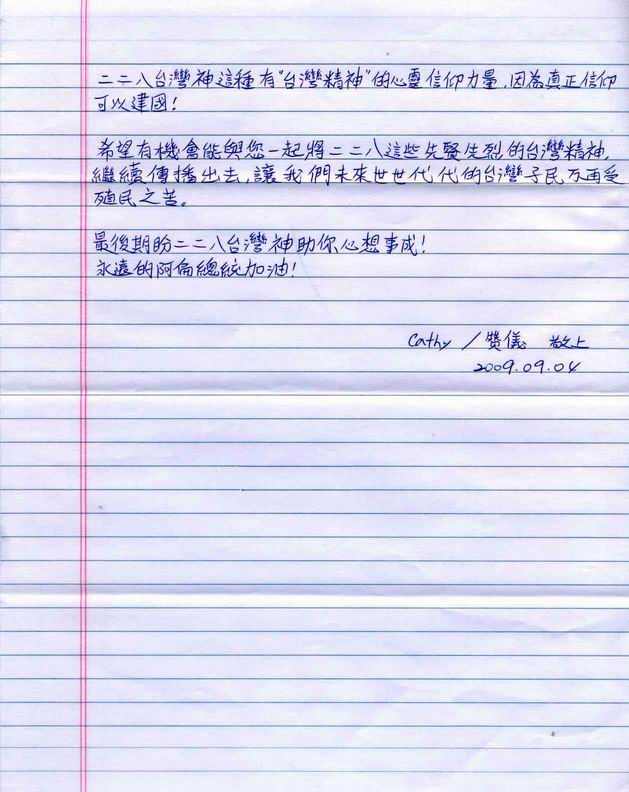 二二八台灣神這種有"台灣精神"的心靈信仰力量,因為真正信仰
可以建國!
希望有機會能與您一起將二二八這些先賢先烈的台灣精神,
繼續傳播出去,讓我們未來世世代代的台灣子民不再受
殖民之苦。
最後期盼二二八台灣神助你心想事成!
永遠的阿扁總統加油!
Cathy /贊儀 敬上
2009.09.04